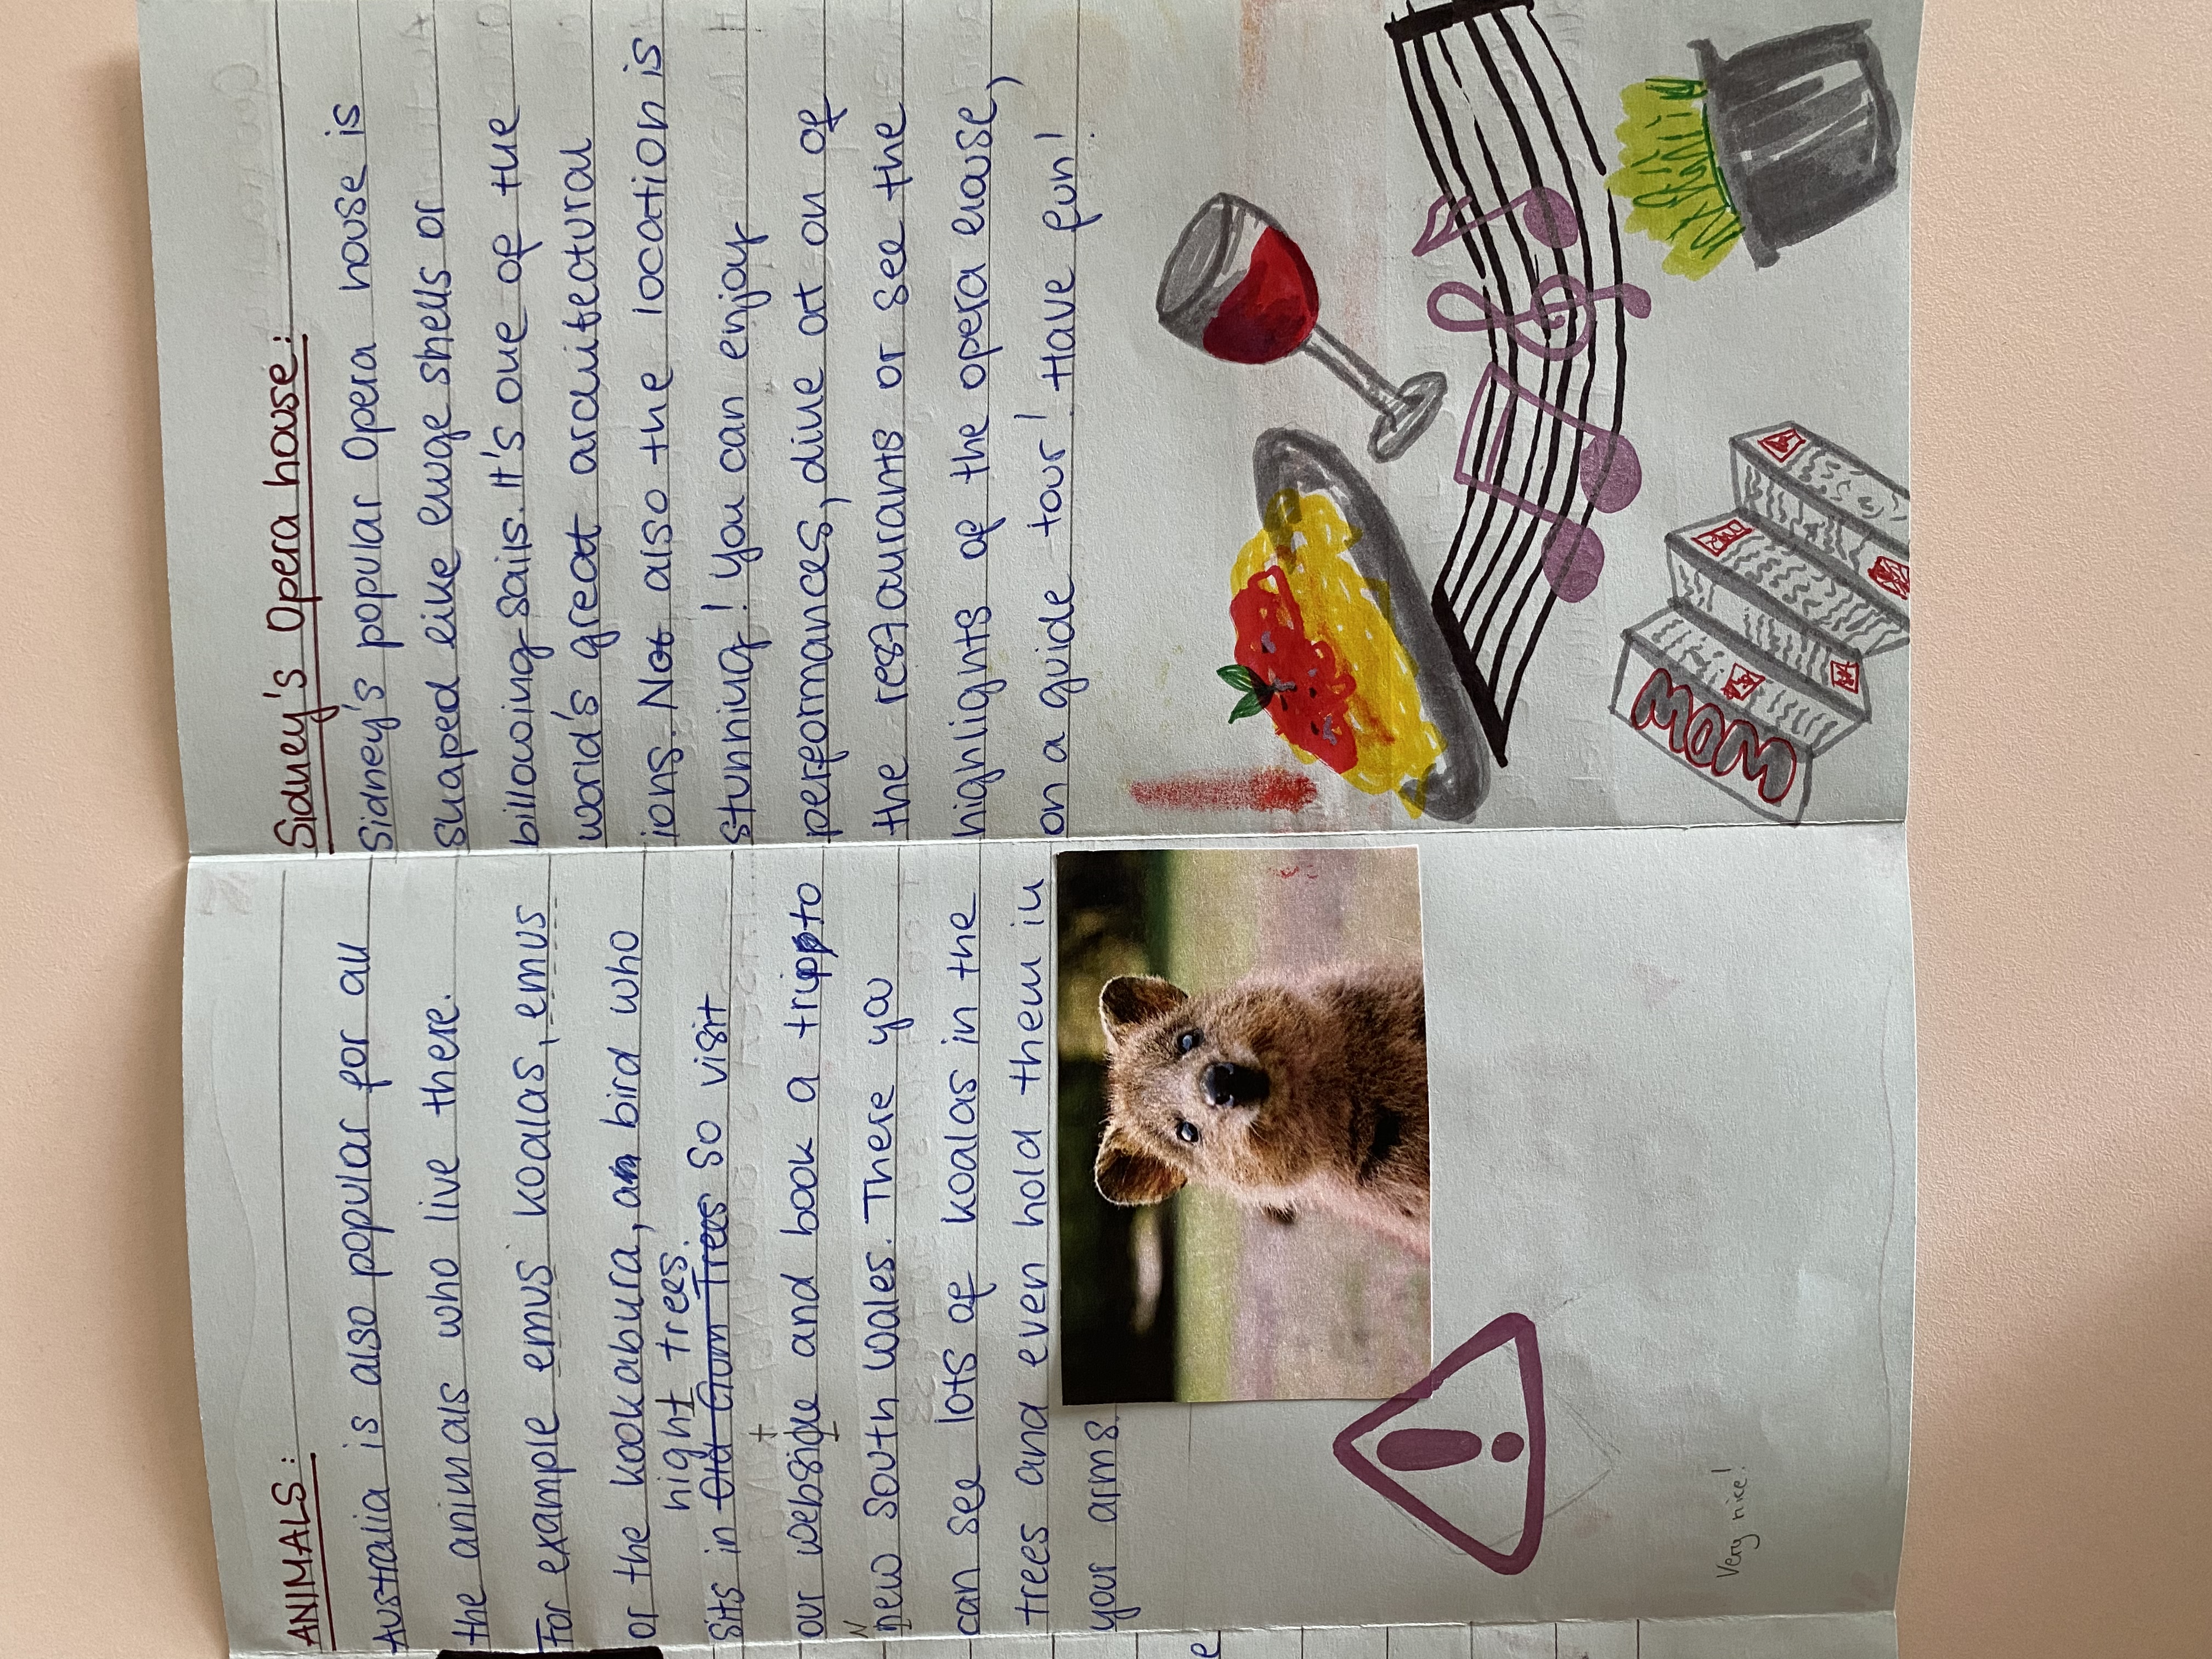 ANIMALS:
Australia is also popular for all
the animals who live there.
For example emus koalas, emus
or the kookabura, a bird who
high trees.
sits in so visit
t
our website and book a trip to
N
new south wales. There you
can see lots of koalas in the
trees and even hold them in
your arms.
Very nice!
Sidney's Opera house:
Sidney's popular Opera house is
shaped like huge shells or
billowing sails. It's one of the
world's great architectural
ions. Not also the location is
stunning! You can enjoy
performances, dine at on of
the restaurants or see the
highlights of the opera house,
on a guide tour! Have fun!
WOW
e